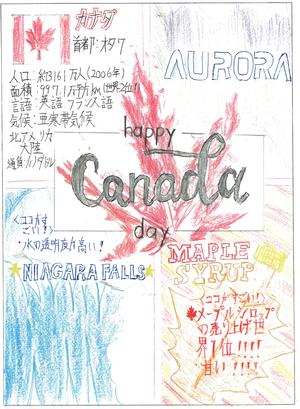 カナダ
首都:オタワ
人口:約3161万人(2006年)
面積:997.1万平方km(世界2位!)
言語:英語 フランス語
気候:亜寒帯気候
北アメリカ
大陸
通貨:カナダドル
AURORA
happy
Canada
day
くココがす
ごい!>
・水の透明度が高い!
NIAGARA FALLS
MAPLE
SYRUP
くココがすごい!>
メープルシロップ
の売り上げ世
界1位!!!!
甘い!!!!